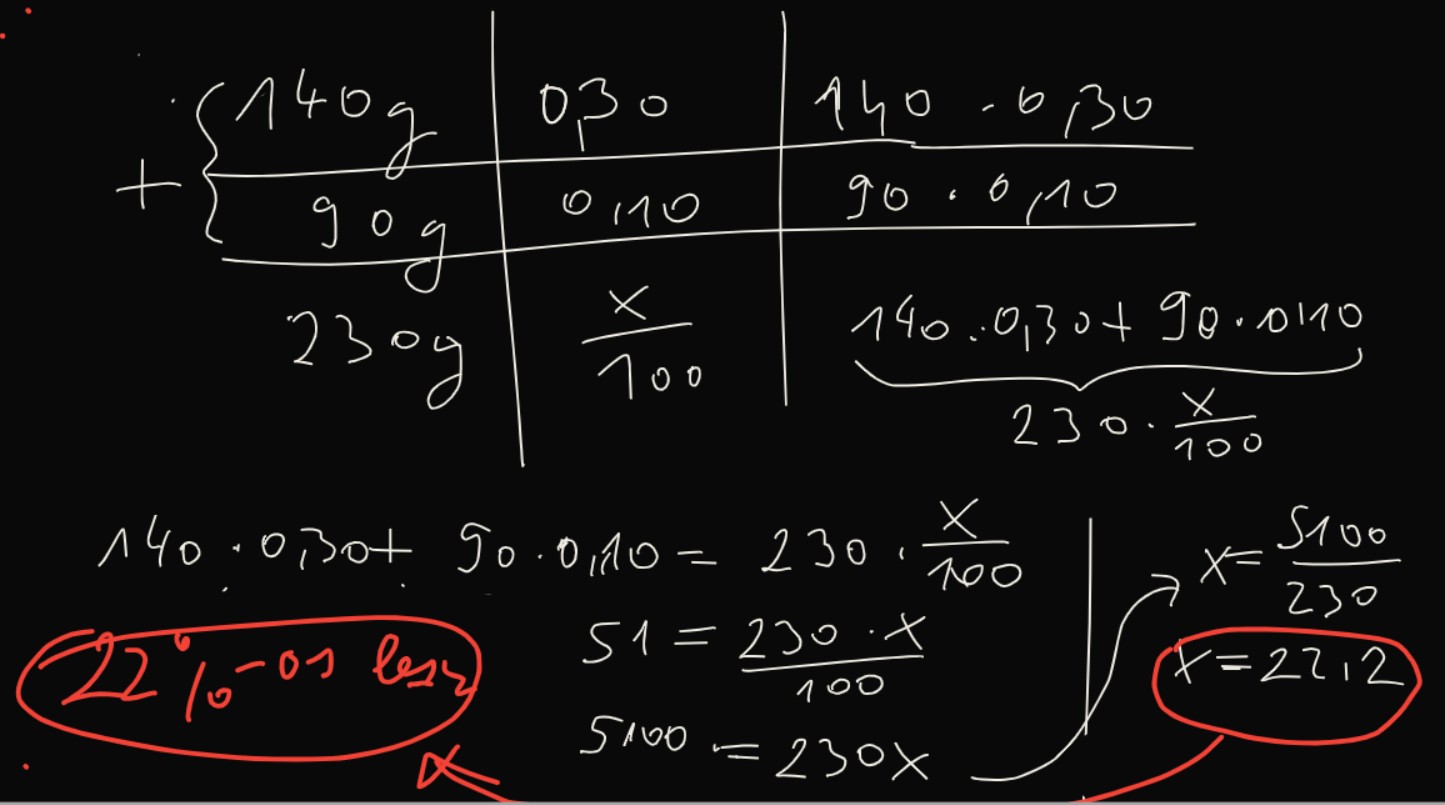 140g 0,30 140 . 0,30
+ 90g 0,10 90 . 0,10
230g x/100 140 . 0,30 + 90 . 0,10
230 . x/100
140 . 0,30 + 90 . 0,10 = 230 . x/100
x = 5100/230
51 = 230 . x/100
x = 22,2
22%-os lesz
5100 = 230x